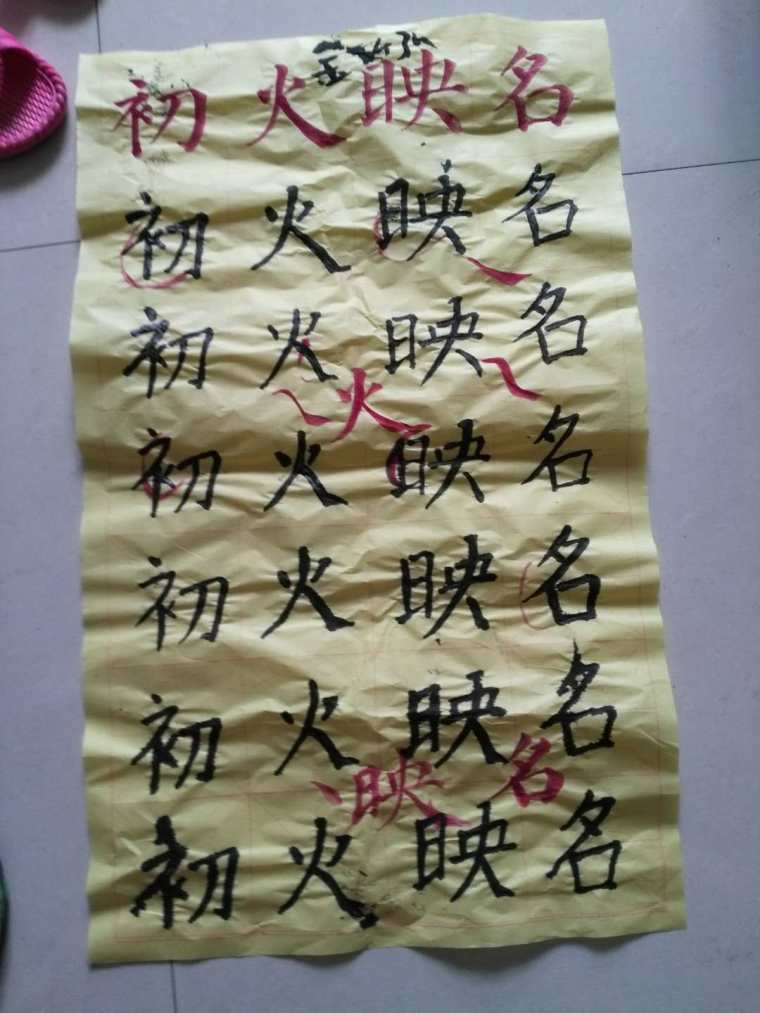 初火映名
初火映名
初火映名
火
初火映名
初火映名
初火映名
映名
初火映名